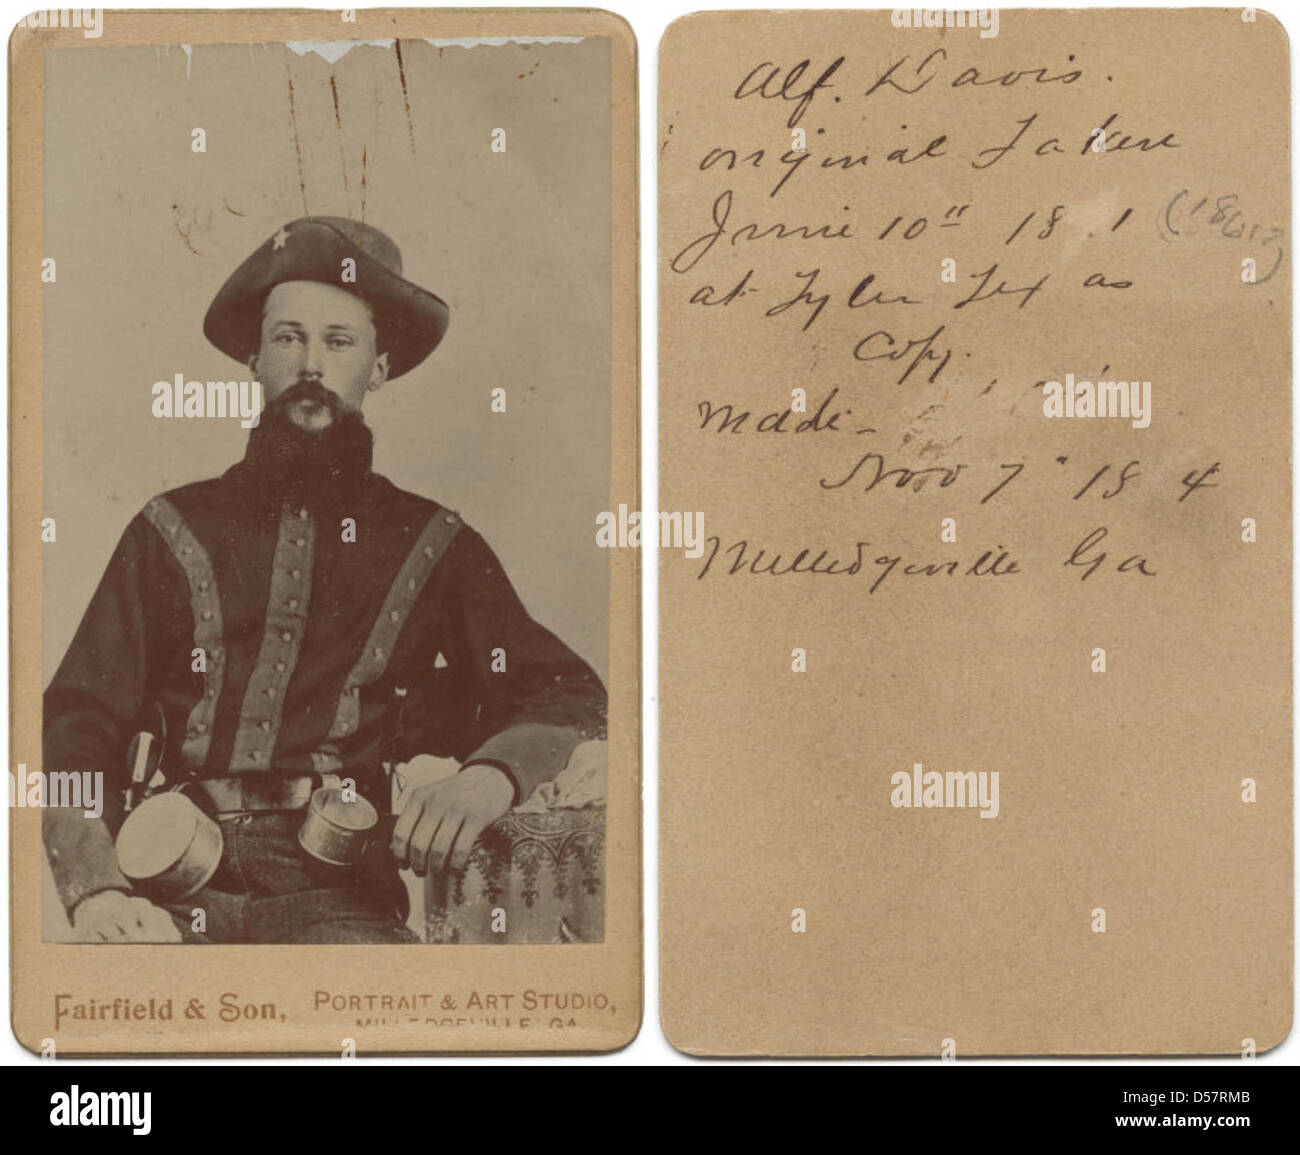 Alf. Davis.
original Taken
June 10" 18 . 1
at Tyler Texas
Copy.
Made -
Nov 7" 18 4
Milledgeville Ga
Fairfield & Son,
PORTRAIT & ART STUDIO,
MILLEDGEVILLE, GA
alamy
alamy
alamy
alamy
alamy
alamy
alamy
Image ID: D57RMB
www.alamy.com